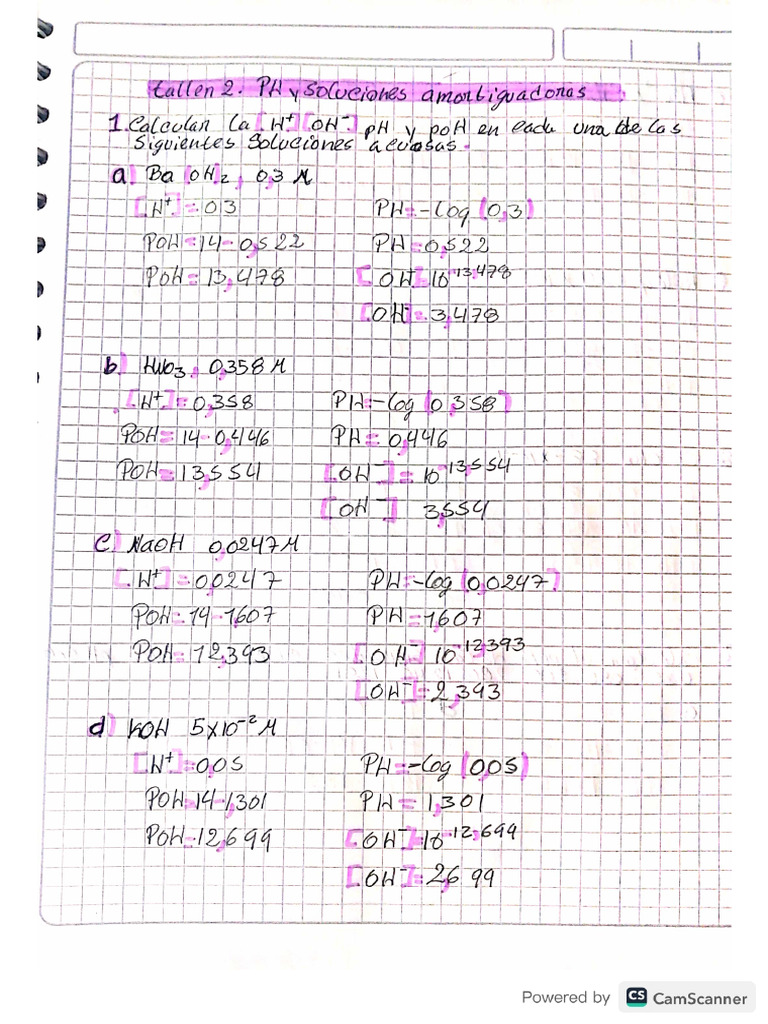 tallen 2. PH y soluciones amortiguadoras.
1. Calcular la [H+] [OH-] pH y poH en cada una de las
Siguientes Soluciones acuosas.
a) Ba (OH)2, 0,3 M
[H+] = 03 PH = -log (0,3)
POH = 14 - 0,522 PH = 0,522
POH = 13,478 [OH-] = 10-13,478
[OH-] = 3,478
b) HNO3, 0,358 M
[H+] = 0,358 PH = -log (0,358)
POH = 14 - 0,446 PH = 0,446
POH = 13,554 [OH-] = 10-13,554
[OH-] 3,554
c) NaOH 0,0247 M
[H+] = 0,0247 PH = -log (0,0247)
POH = 14 - 1,607 PH = 1,607
POH = 12,393 [OH-] 10-12,393
[OH-] = 2,393
d) KOH 5x10-2 M
[H+] = 0,05 PH = -log (0,05)
POH = 14 - 1,301 PH = 1,301
POH = 12,699 [OH-] = 10-12,699
[OH-] = 2,699
Powered by CS CamScanner